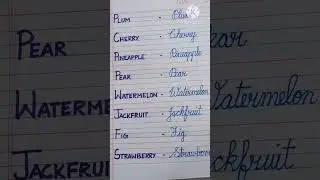 Plum - Plum
Cherry - Cherry
Pineapple - Pineapple
Pear - Pear
Watermelon - Watermelon
Jackfruit - Jackfruit
Fig - Fig
Strawberry -
Pear
Watermelon
Jackfruit
ear
atermelon
ckfruit